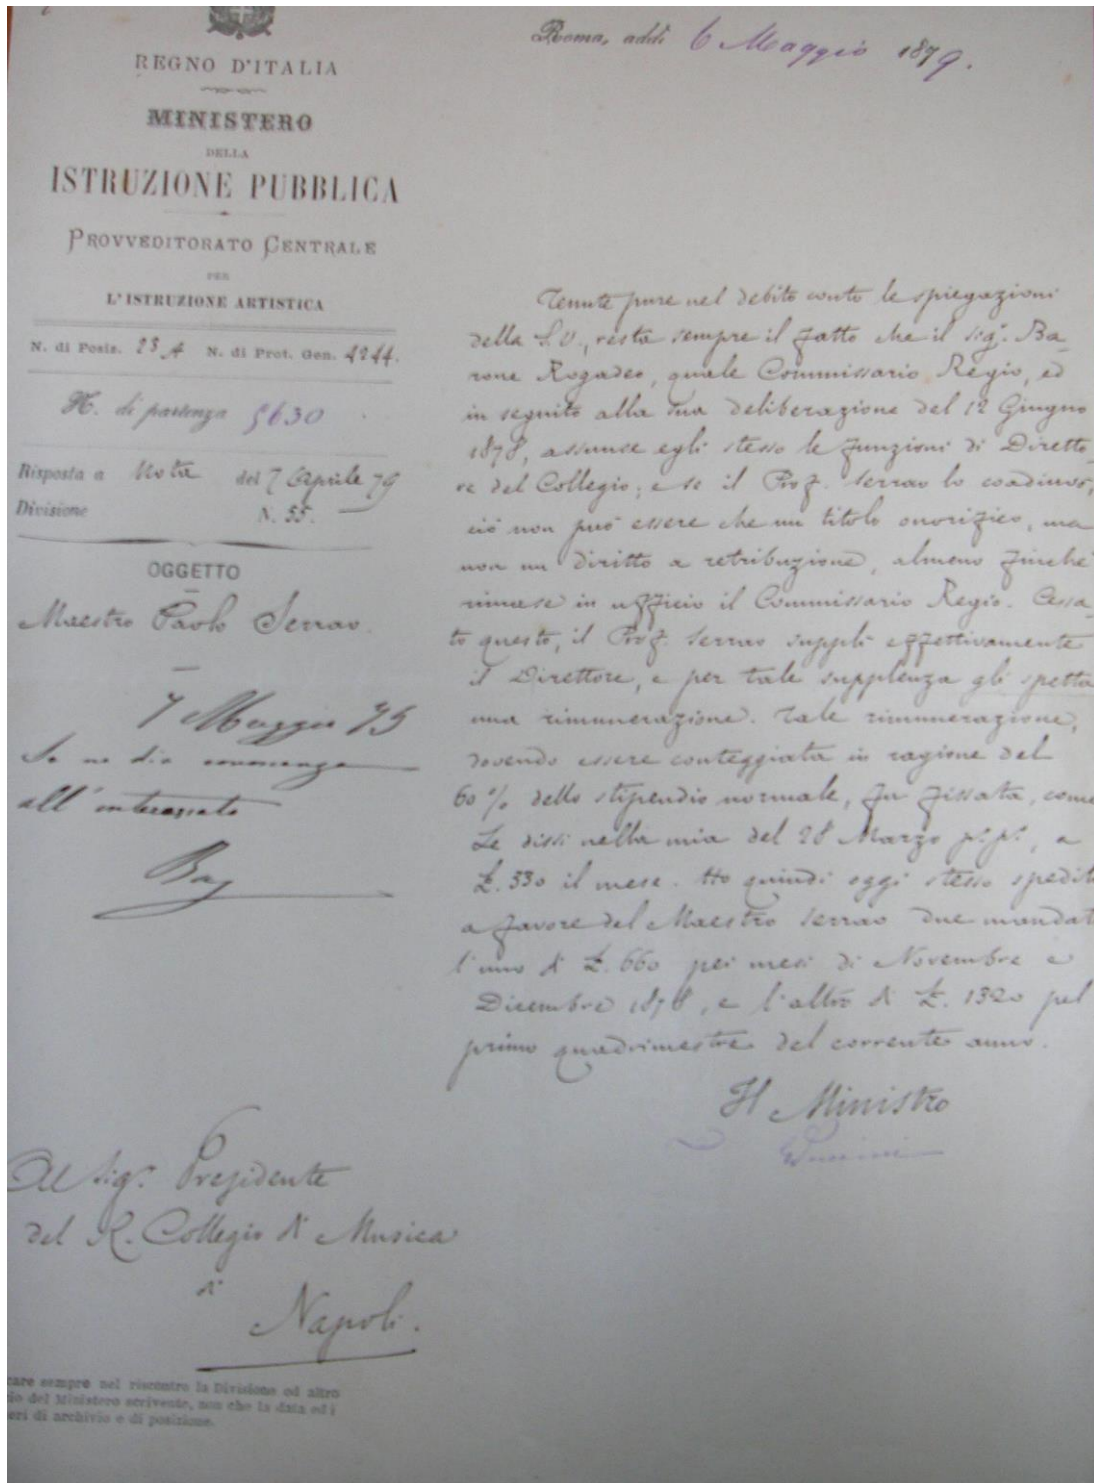 REGNO D'ITALIA
MINISTERO
DELLA
ISTRUZIONE PUBBLICA
PROVVEDITORATO CENTRALE
PER
L'ISTRUZIONE ARTISTICA
N. di Posiz. 23 A N. di Prot. Gen. 4244.
N. di partenza 5630
Risposta a Nota del 7 Aprile 79
Divisione N. 55.
OGGETTO
Maestro Paolo Serrao.
7 Maggio 79
Se ne dia
all'interessato
Al Sig. Presidente
del R. Collegio di Musica
di
Napoli.
care sempre nel riscontro la Divisione od altro
cio del Ministero scrivente, non che la data ed i
eri di archivio e di posizione.
Roma, addì 6 Maggio 1879.
Tenute pure nel debito conto le spiegazioni
della S.V., resta sempre il fatto che il sig. Ba-
rone Rogadeo, quale Commissario Regio, ed
in seguito alla sua deliberazione del 12 Giugno
1878, assunse egli stesso le funzioni di Diretto-
re del Collegio; e se il Prof. Serrao lo coadiuvò,
ciò non può essere che un titolo onorifico, ma
non un diritto a retribuzione, almeno finchè
rimase in ufficio il Commissario Regio. Cessa-
to questo, il Prof. Serrao supplì effettivamente
il Direttore, e per tale supplenza gli spetta
una rimunerazione. Tale rimunerazione,
dovendo essere conteggiata in ragione del
60 % dello stipendio normale, fu fissata, come
Le dissi nella mia del 28 Marzo p.p., a
£. 330 il mese. Ho quindi oggi stesso spedit
a favore del Maestro Serrao due mandat
l'uno di £. 660 pei mesi di Novembre e
Dicembre 1878, e l'altro di £. 1320 pel
primo quadrimestre del corrente anno.
Il Ministro